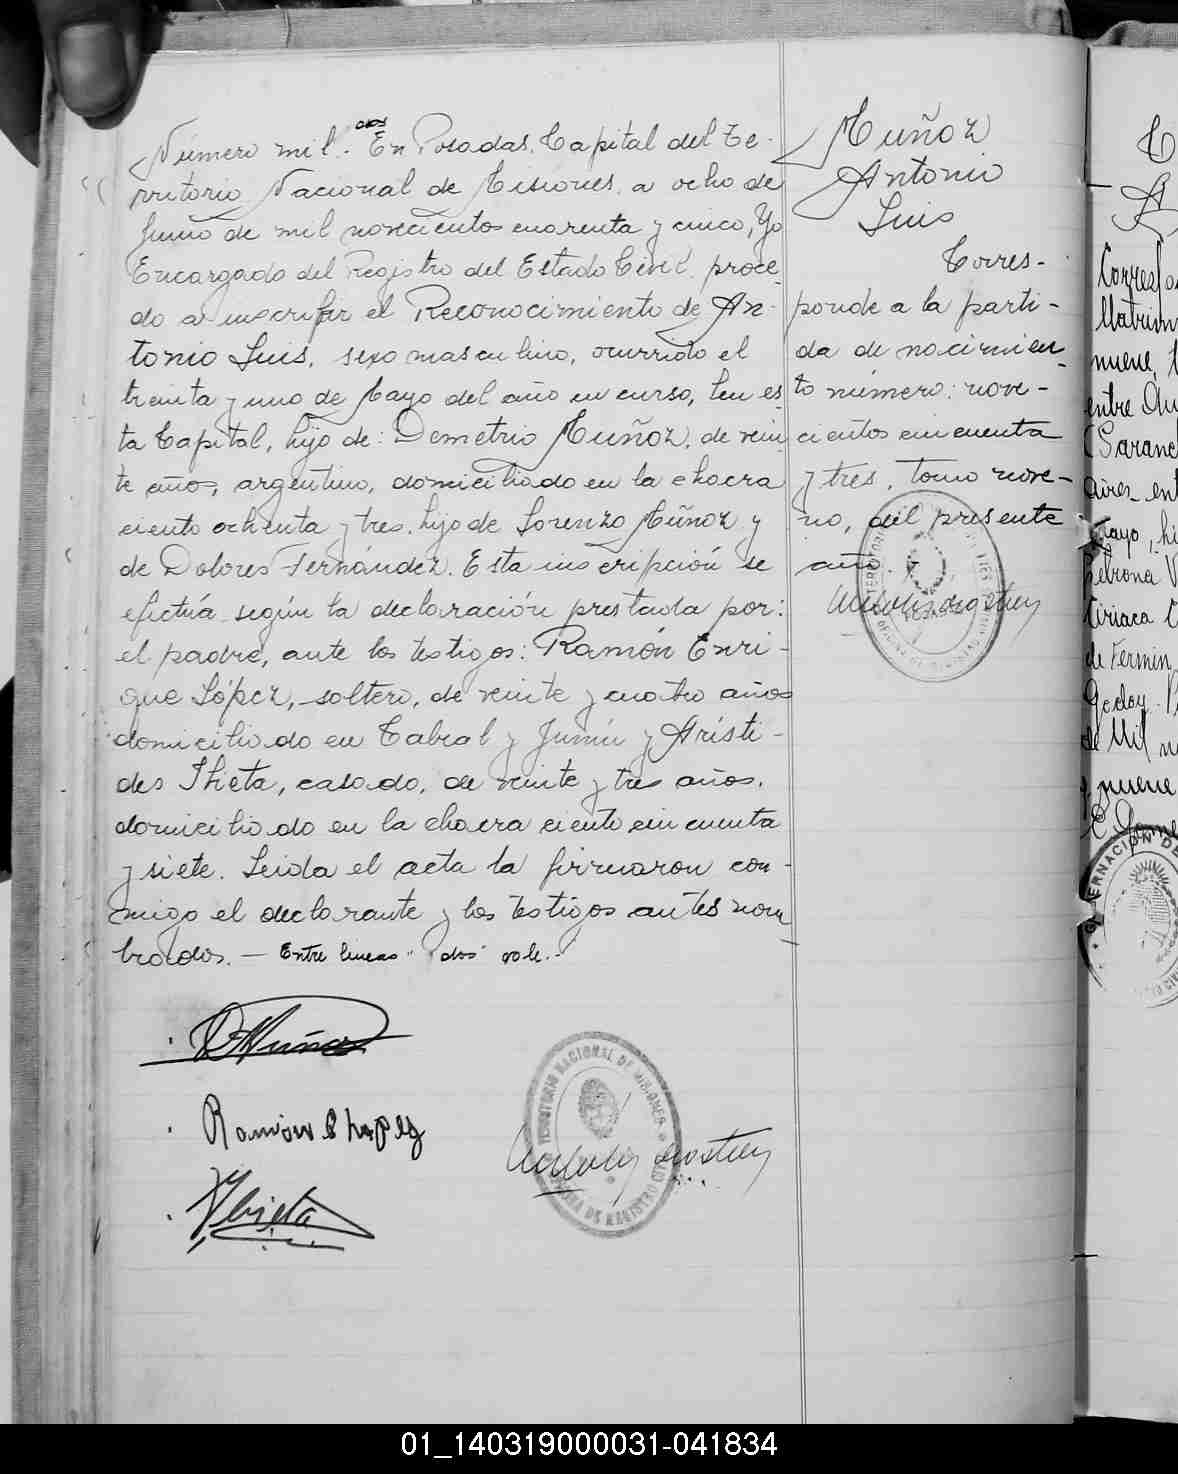 Número mil dos. En Posadas, Capital del Te-
rritorio Nacional de Misiones, a ocho de
Junio de mil novecientos cuarenta y cinco, Yo
Encargado del Registro del Estado Civil, proce-
do a inscribir el Reconocimiento de An-
tonio Luis, sexo masculino, ocurrido el
treinta y uno de Mayo del año en curso, en es-
ta Capital, hijo de: Demetrio Muñoz, de vein-
te años, argentino, domiciliado en la chacra
ciento ochenta y tres, hijo de Lorenzo Muñoz y
de Dolores Fernández. Esta inscripción se
efectúa según la declaración prestada por:
el padre, ante los testigos: Ramón Enri-
que López, soltero, de veinte y cuatro años
domiciliado en Cabral y Junín y Arísti-
des Theta, casado, de veinte y tres años,
domiciliado en la chacra ciento cincuenta
y siete. Leida el acta la firmaron con-
migo el declarante y los testigos antes nom-
brados. — Entre lineas "dos" vale.-
D Muñoz
Ramón E Lopez
TERRITORIO NACIONAL DE MISIONES
OFICINA DE REGISTRO CIVIL
MUÑOZ
Antonio
Luis
Corres-
ponde a la parti-
da de nacimien-
to número: nove-
cientos cincuenta
y tres, tomo nove-
no, del presente
año.
POSADAS
C
Corresp
Matrim
nueve,
entre
(Saran
Aires, ent
Mayo, hi
Petrona V
Ciriaca
de Fermin
Godoy.
de Mil n
y nueve
GOBERNACION DE
01_140319000031-041834